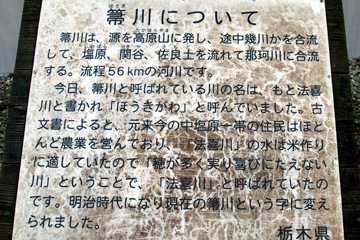 箒川について
箒川は、源を高原山に発し、途中幾川かを合流
して、塩原、関谷、佐良土を流れて那珂川に合流
する。流程56kmの河川です。
今日、箒川と呼ばれている川の名は、もと法喜
川と書かれ「ほうきがわ」と呼んでいました。古
文書によると、元来今の中塩原一帯の住民はほと
んど農業を営んでおり、「法喜川」の水は米作り
に適していたので「穂が多く実り喜びにたえない
川」ということで、「法喜川」と呼ばれていたの
です。明治時代になり現在の箒川という字に変え
られました。
栃木県